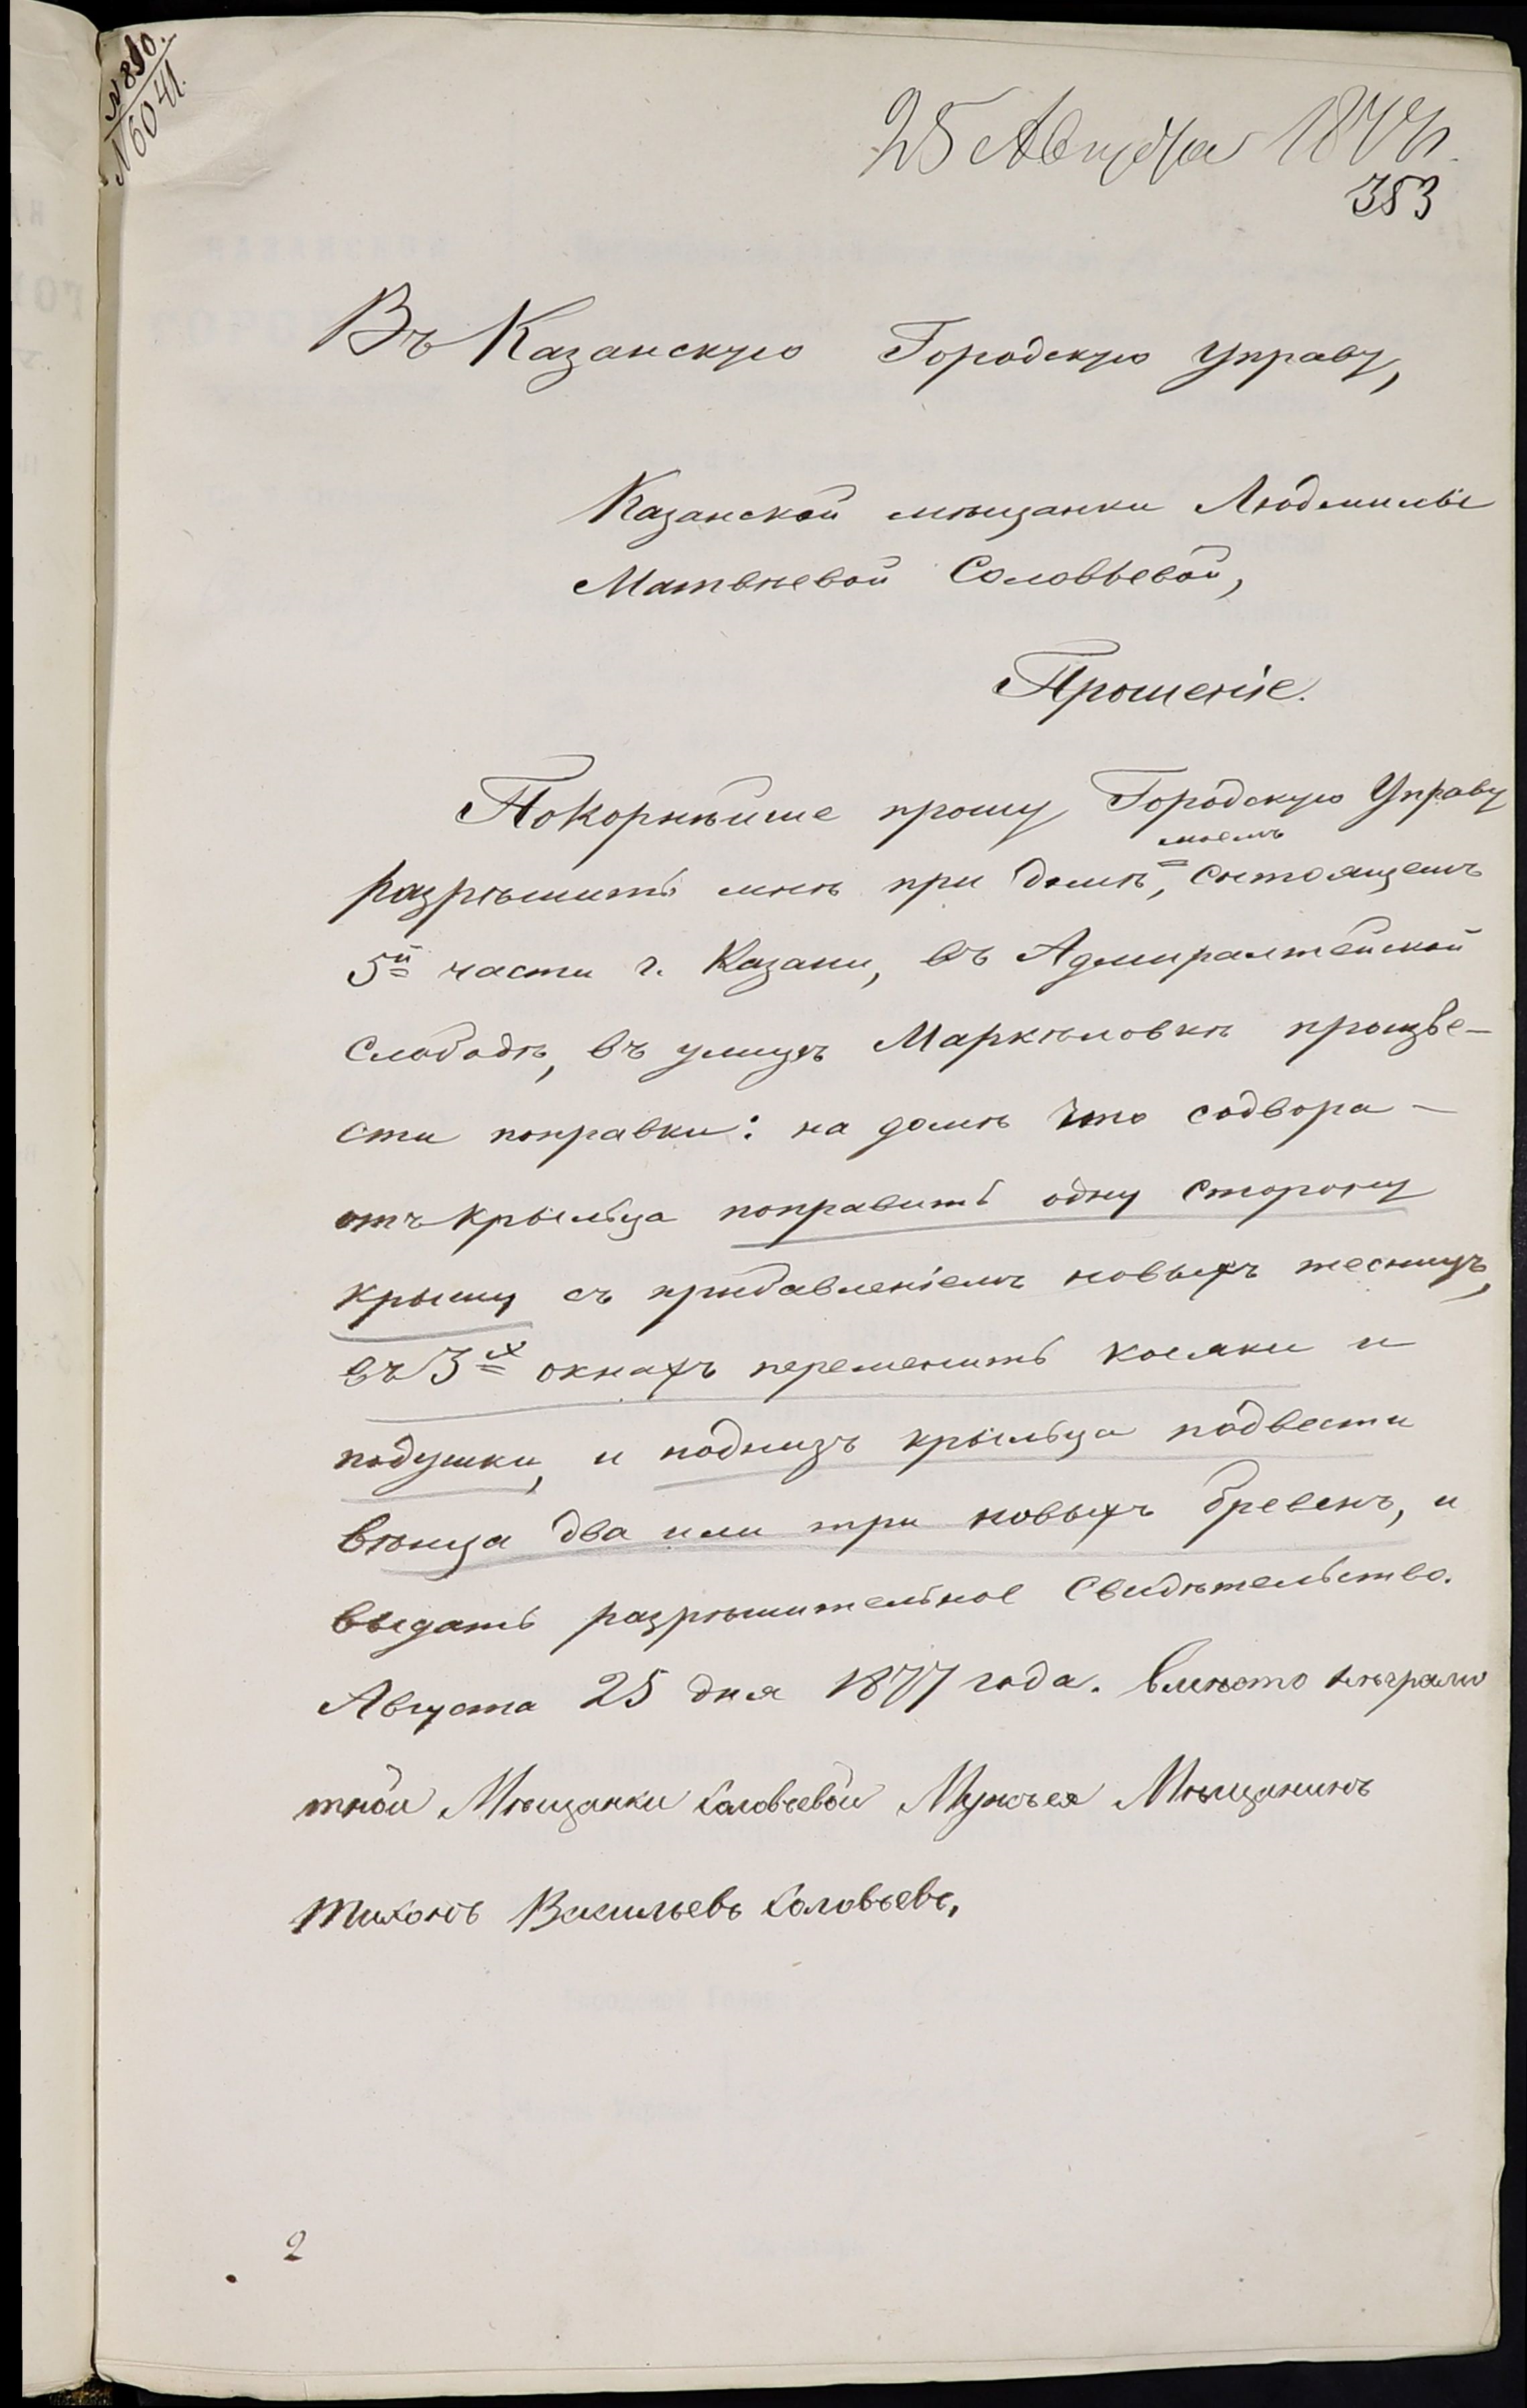 № 890.
№ 6041.
25 Августа 1877 г.
353
Въ Казанскую Городскую Управу,
Казанской мѣщанки Людмилы
Матвѣевой Соловьевой,
Прошеніе.
Покорнѣйше прошу Городскую Управу
моемъ
разрѣшить мнѣ при домѣ, состоящемъ
5й части г. Казани, въ Адмиралтейской
слободѣ, въ улицѣ Маркѣловкѣ произве-
сти поправки: на домѣ что содвора -
отъ крыльца поправить одну сторону
крышу съ прибавленіемъ новыхъ тесницъ,
въ 3х окнахъ переменить косяки и
подушки, и подмизъ крыльца подвести
вѣнца два или три новыхъ бревенъ, и
выдать разрѣшительное Свидѣтельство.
Августа 25 дня 1877 года. вмѣсто неграмо
тной Мѣщанки Соловьевой Мужъ ея Мѣщанинъ
Тихонъ Васильевъ Соловьевъ.
2